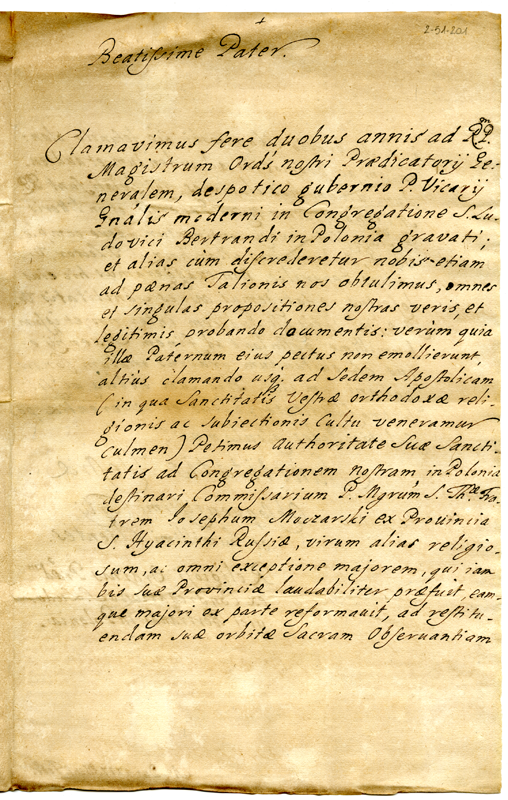 +
2-51-201
Beatissime Pater.
Clamavimus fere duobus annis ad RP.
Magistrum Ord's nostri Prædicatorij Ge-
neralem, despotico gubernio P. Vicarij
Gnãlis moderni in Congregatione S. Lu-
dovici Bertrandi in Polonia gravati;
et alias cum discrederetur nobis etiam
ad pœnas Talionis nos obtulimus, omnes
et singulas propositiones nostras veris, et
legitimis probando documentis: verum quia
illæ Paternum eius pectus non emollierunt,
altius clamando usq. ad Sedem Apostolicam
(in qua Sanctitatis Vestræ orthodoxæ reli-
gionis ac subiectionis Cultu veneramur
culmen) Petimus Authoritate Suæ Sancti-
tatis ad Congregationem nostram in Polonia
destinari Commissarium P. Mgrum S. Thæ Fra-
trem Iosephum Moczarski ex Provincia
S. Hyacinthi Russiæ, virum alias religio-
sum, ac omni exceptione majorem, qui iam
bis suæ Provinciæ laudabiliter præfuit, eam-
que majori ex parte reformavit, ad restitu-
endam suæ orbitæ Sacram Observantiam